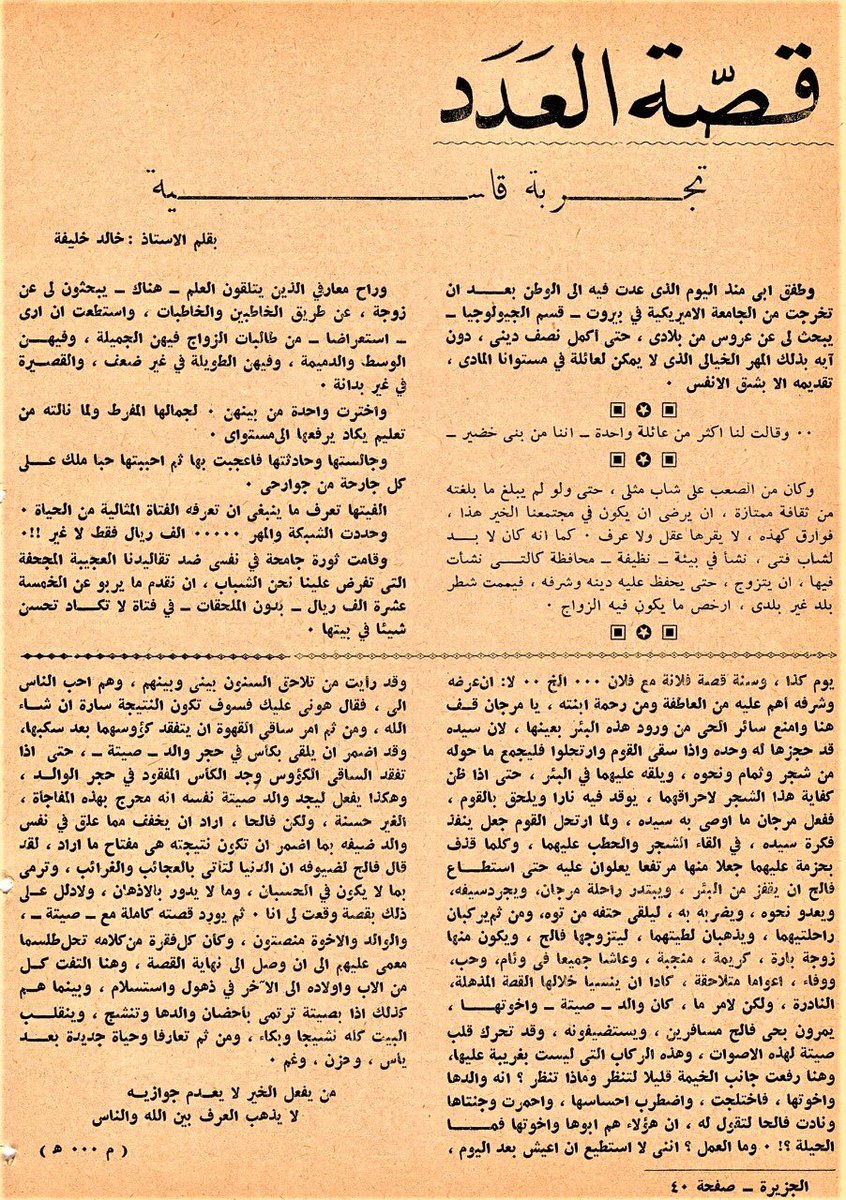 قصّة العَدَد
تجربة قاسية
بقلم الاستاذ : خالد خليفة
وطفق ابى منذ اليوم الذى عدت فيه الى الوطن بعد ان
تخرجت من الجامعة الاميريكية في بيروت ــ قسم الجيولوجيا ــ
يبحث لى عن عروس من بلادى ، حتى أكمل نصف دينى ، دون
آبه بذلك المهر الخيالى الذى لا يمكن لعائلة في مستوانا المادى ،
تقديمه الا بشق الانفس ٠
٠٠ وقالت لنا اكثر من عائلة واحدة ــ اننا من بنى خضير ــ
وكان من الصعب على شاب مثلى ، حتى ولو لم يبلغ ما بلغته
من ثقافة ممتازة ، ان يرضى ان يكون في مجتمعنا الخير هذا ،
فوارق كهذه ، لا يقرها عقل ولا عرف ٠ كما انه كان لا بد
لشاب فتى ، نشأ في بيئة ــ نظيفة ــ محافظة كالتى نشأت
فيها ، ان يتزوج ، حتى يحفظ عليه دينه وشرفه ، فيممت شطر
بلد غير بلدى ، ارخص ما يكون فيه الزواج ٠
وراح معارفي الذين يتلقون العلم ــ هناك ــ يبحثون لى عن
زوجة ، عن طريق الخاطبين والخاطبات ، واستطعت ان ارى
ــ استعراضا ــ من طالبات الزواج فيهن الجميلة ، وفيهن
الوسط والدميمة ، وفيهن الطويلة في غير ضعف ، والقصيرة
في غير بدانة ٠
واخترت واحدة من بينهن ٠ لجمالها المفرط ولما نالته من
تعليم يكاد يرفعها الى مستواى ٠
وجالستها وحادثتها فاعجبت بها ثم احببتها حبا ملك على
كل جارحة من جوارحى ٠
الفيتها تعرف ما ينبغى ان تعرفه الفتاة المثالية من الحياة ٠
وحددت الشبكة والمهر ٠٠٠٠٠ الف ريال فقط لا غير !!٠
وقامت ثورة جامحة في نفسى ضد تقاليدنا العجيبة المجحفة
التى تفرض علينا نحن الشباب ، ان نقدم ما يربو عن الخمسة
عشرة الف ريال ــ بدون الملحقات ــ في فتاة لا تكاد تحسن
شيئا في بيتها ٠
يوم كذا ، وسنة قصة فلانة مع فلان ٠٠٠ الخ ٠٠ لا: ان عرضه
وشرفه أهم عليه من العاطفة ومن رحمة ابنته ، يا مرجان قف
هنا وامنع سائر الحى من ورود هذه البئر بعينها ، لان سيده
قد حجزها له وحده واذا سقى القوم وارتحلوا فليجمع ما حوله
من شجر وثمام ونحوه ، ويلقه عليهما في البئر ، حتى اذا ظن
كفاية هذا الشجر لاحراقهما ، يوقد فيه نارا ويلحق بالقوم ،
ففعل مرجان ما اوصى به سيده ، ولما ارتحل القوم جعل ينفذ
فكرة سيده ، في القاء الشجر والحطب عليهما ، وكلما قذف
بحزمة عليهما جعلا منها مرتفعا يعلوان عليه حتى استطاع
فالح ان يقفز من البئر ، ويبتدر راحلة مرجان، ويجردسيفه،
ويعدو نحوه ، ويضربه به ، ليلقى حتفه من توه، ومن ثم يركبان
راحلتيهما ، ويذهبان لطيتهما ، ليتزوجها فالح ، ويكون منها
زوجة بارة ، كريمة ، منجبة ، وعاشا جميعا في وئام، وحب،
ووفاء ، اعواما متلاحقة ، كادا ان ينسيا خلالها القصة المذهلة،
النادرة ، ولكن لامر ما ، كان والد ــ صيتة ــ واخوتها ،
يمرون بحى فالح مسافرين ، ويستضيفونه ، وقد تحرك قلب
صيتة لهذه الاصوات ، وهذه الركاب التى ليست بغريبة عليها،
وهنا رفعت جانب الخيمة قليلا لتنظر وماذا تنظر ؟ انه والدها
واخوتها ، فاختلجت ، واضطرب احساسها ، واحمرت وجنتاها
ونادت فالحا لتقول له ، ان هؤلاء هم ابوها واخوتها فما
الحيلة ؟! ٠ وما العمل ؟ اننى لا استطيع ان اعيش بعد اليوم ،
وقد رأيت من تلاحق السنون بينى وبينهم ، وهم احب الناس
الى ، فقال هونى عليك فسوف تكون النتيجة سارة ان شاء
الله ، ومن ثم امر ساقى القهوة ان يتفقد كؤوسهما بعد سكبها،
وقد اضمر ان يلقى بكأس في حجر والد ــ صيتة ــ ، حتى اذا
تفقد الساقى الكؤوس وجد الكأس المفقود في حجر الوالد ،
وهكذا يفعل ليجد والد صيتة نفسه انه محرج بهذه المفاجاة ،
الغير حسنة ، ولكن فالحا ، اراد ان يخفف مما علق في نفس
والد ضيفه بما اضمر ان تكون نتيجته هى مفتاح ما اراد ، لقد
قال فالح لضيوفه ان الدنيا لتأتى بالعجائب والغرائب ، وترمى
بما لا يكون في الحسبان ، وما لا يدور بالاذهان ، ولادلل على
ذلك بقصة وقعت لى انا ٠ ثم يورد قصته كاملة مع ــ صيتة ــ ،
والوالد والاخوة منصتون ، وكان كل فقرة من كلامه تحل طلسما
معمى عليهم الى ان وصل الى نهاية القصة ، وهنا التفت كل
من الاب واولاده الى الآخر في ذهول واستسلام ، وبينما هم
كذلك اذا بصيتة ترتمى بأحضان والدها وتنشج ، وينقلب
البيت كله نشيجا وبكاء ، ومن ثم تعارفا وحياة جديدة بعد
يأس ، وحزن ، وغم ٠
من يفعل الخير لا يعدم جوازيه
لا يذهب العرف بين الله والناس
( م ٠٠٠ هـ )
الجزيرة ــ صفحة ٤٠